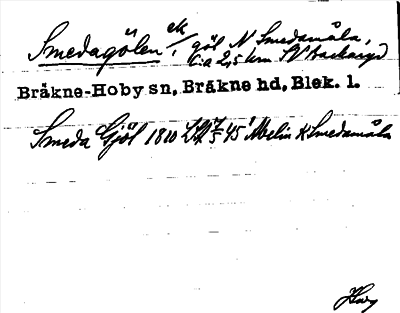 Smedagölen ek /, göl N Smedamåla,
c:a 2,5 km SV Backaryd
Bräkne-Hoby sn, Bräkne hd, Blek. l.
Smeda Gjöl 1810 Melin K Smedamåla